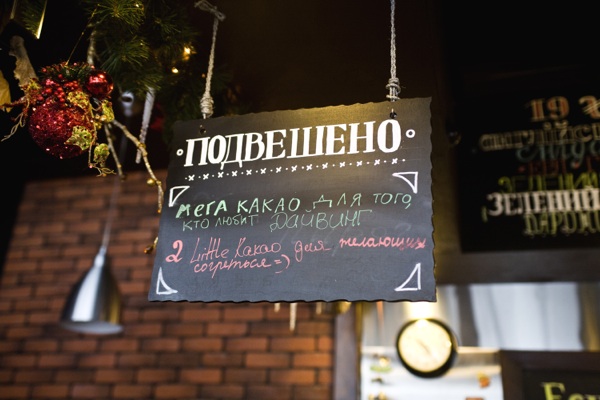 ПОДВЕШЕНО
МЕГА КАКАО ДЛЯ ТОГО,
КТО ЛЮБИТ ДАЙВИНГ
2 Little Какао для желающих
согреться =)
19
ЗЕЛЕНИЙ